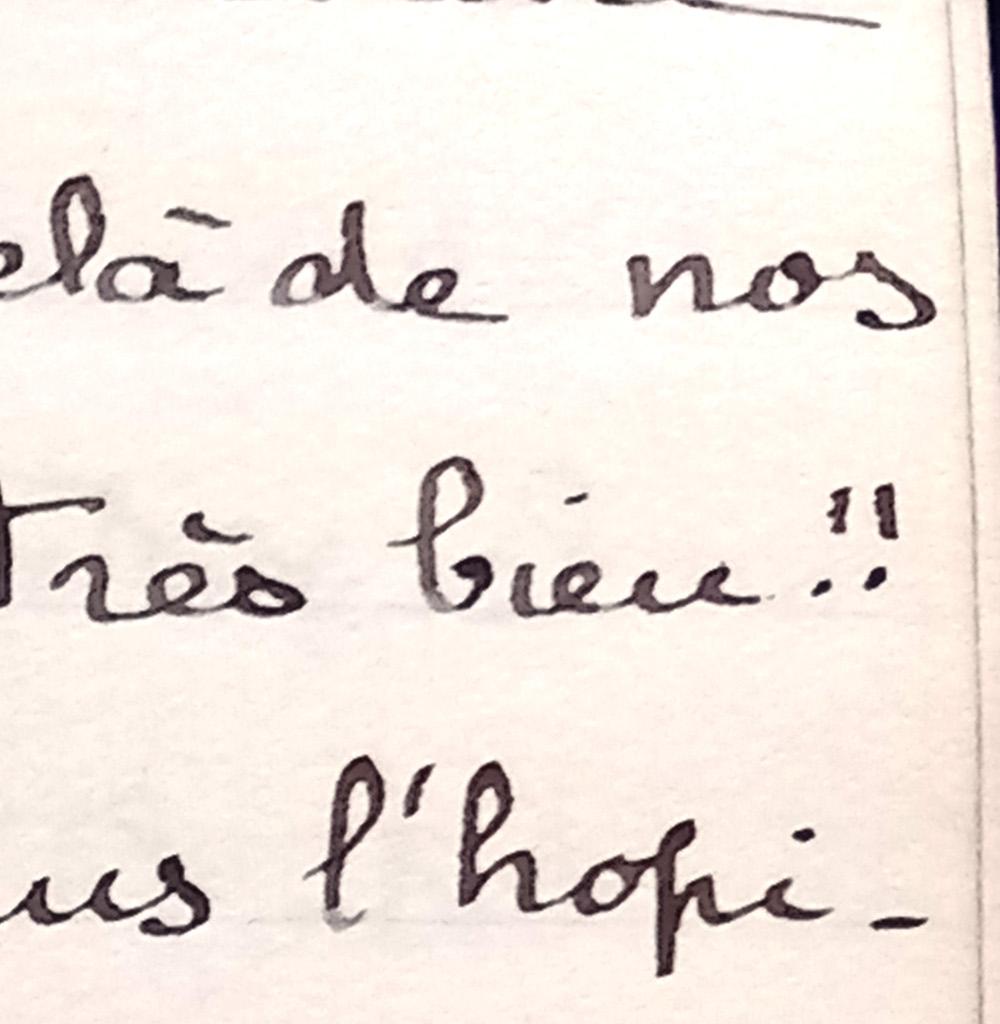 elà de nos
très bien !!
us l'hopi-